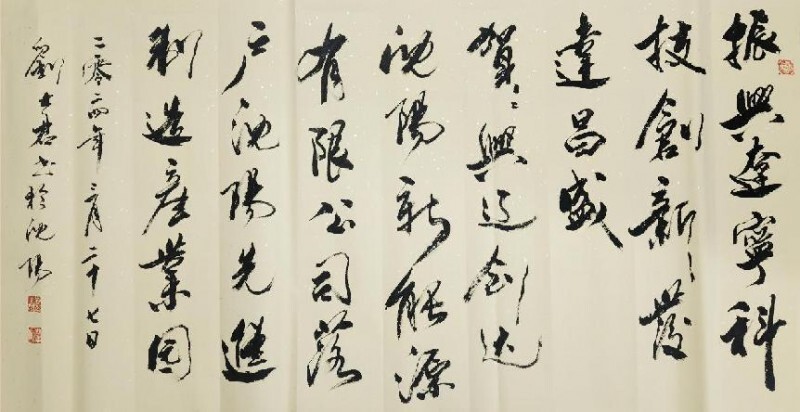 振興遼寧科
技創新發
達昌盛
賀興辽创达
沈陽新能源
有限公司落
户沈陽先進
制造産業园
二零二四年二月二十七日
劉士君书於沈陽